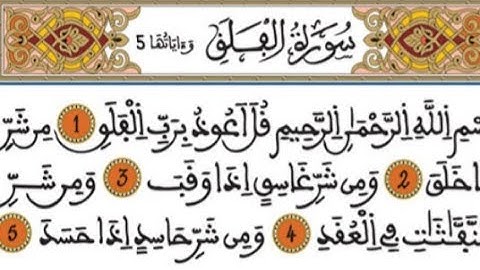 سُورَةُ الْفَلَقِ وَءَايَاتُهَا 5
سْمِ اِللَّهِ اِلرَّحْمَٰنِ اِلرَّحِيمِ قُلَ اَعُوذُ بِرَبِّ اِلْفَلَقِ 1 مِن شَرِّ
ا خَلَقَ 2 وَمِن شَرِّ غَاسِقٍ اِذَا وَقَبَ 3 وَمِن شَرِّ
نَّفَّٰثَٰتِ فِي اِلْعُقَدِ 4 وَمِن شَرِّ حَاسِدٍ اِذَا حَسَدَ 5